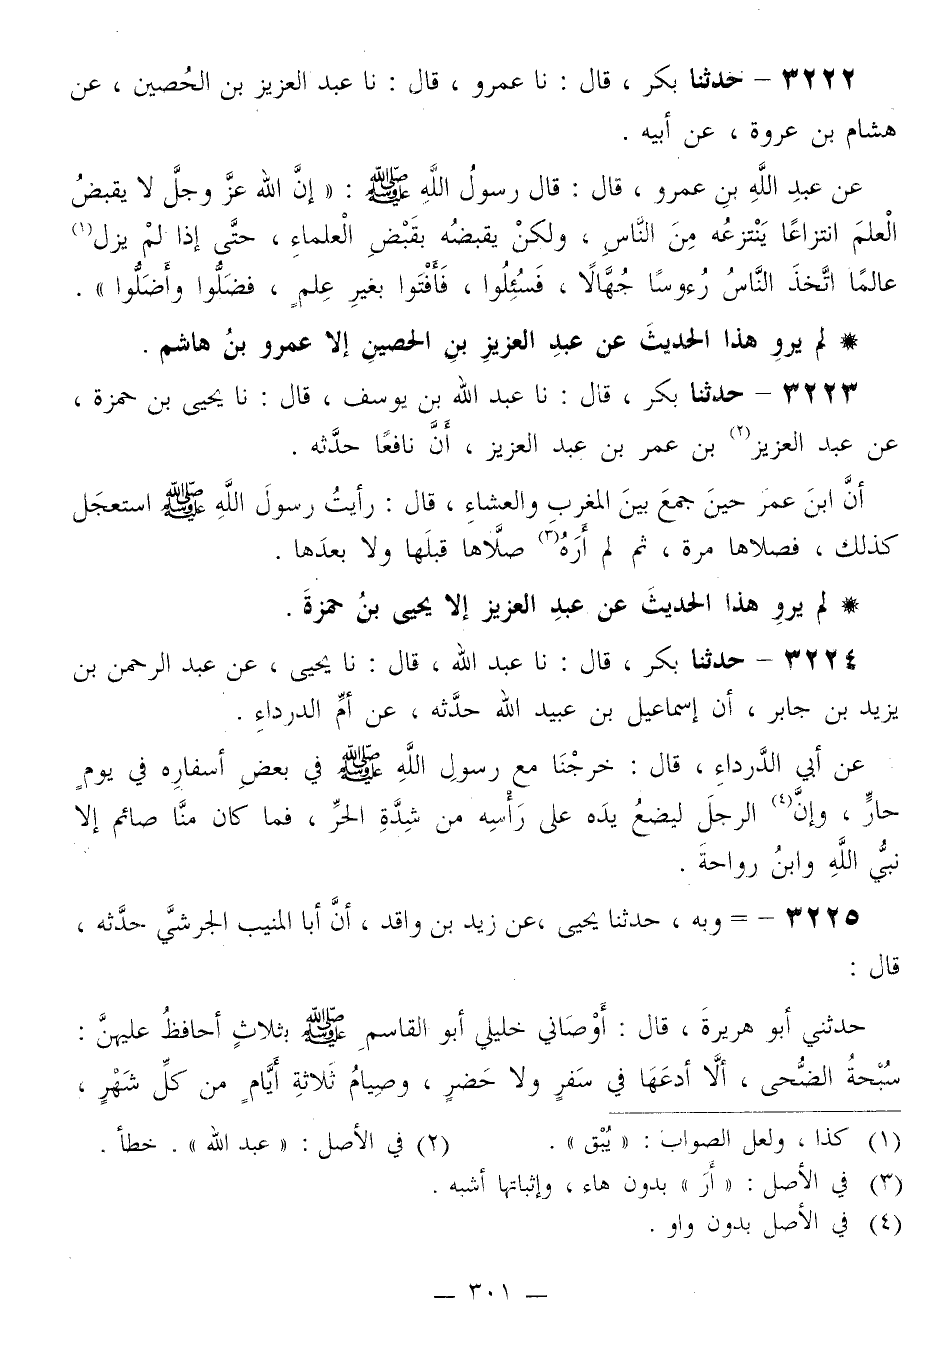 ٣٢٢٢ – حدثنا بكر ، قال : نا عمرو ، قال : نا عبد العزيز بن الحُصين ، عن
هشام بن عروة ، عن أبيه .
عن عبدِ اللَّهِ بنِ عمرو ، قال : قال رسولُ اللَّهِ ﷺ : « إنَّ الله عزَّ وجلَّ لا يقبضُ
الْعلمَ انتزاعًا يَنْتزعُه مِنَ النَّاسِ ، ولكنْ يقبضُه بقَبْضِ الْعلماءِ ، حتَّى إذا لمْ يزل(١)
عالمًا اتَّخذَ النَّاسُ رُءوسًا جُهَّالًا ، فَسُئِلُوا ، فَأَفْتَوا بغيرِ عِلمٍ ، فضلُّوا وأَضَلُّوا » .
* لم يروِ هذا الحديثَ عن عبدِ العزيزِ بنِ الحصينِ إلا عمرو بنُ هاشم .
٣٢٢٣ – حدثنا بكر ، قال : نا عبد الله بن يوسف ، قال : نا يحيى بن حمزة ،
عن عبد العزيز(٢) بن عمر بن عبد العزيز ، أَنَّ نافعًا حدَّثه .
أنَّ ابنَ عمرَ حينَ جمعَ بينَ المغربِ والعشاءِ ، قال : رأيتُ رسولَ اللَّهِ ﷺ استعجَل
كذلك ، فصلاها مرة ، ثم لم أَرَهُ(٣) صلَّاها قبلَها ولا بعدَها .
* لم يروِ هذا الحديثَ عن عبدِ العزيز إلا يحيى بنُ حمزةَ .
٣٢٢٤ – حدثنا بكر ، قال : نا عبد الله ، قال : نا يحيى ، عن عبد الرحمن بن
يزيد بن جابر ، أن إسماعيل بن عبيد الله حدَّثه ، عن أمِّ الدرداءِ .
عن أبي الدَّرداءِ ، قال : خرجْنَا مع رسولِ اللَّهِ ﷺ في بعضِ أسفارِه في يومٍ
حارٍّ ، وإنَّ(٤) الرجلَ ليضعُ يدَه على رَأْسِه من شِدَّةِ الحرِّ ، فما كان منَّا صائم إلا
نبيُّ اللَّهِ وابنُ رواحةَ .
٣٢٢٥ – = وبه ، حدثنا يحيى ،عن زيد بن واقد ، أنَّ أبا المنيب الجرشيَّ حدَّثه ،
قال :
حدثني أبو هريرةَ ، قال : أَوْصَاني خليلي أبو القاسمِ ﷺ بثلاثٍ أحافظُ عليهنَّ :
سُبْحةُ الضُّحى ، ألَّا أدعَهَا في سَفرٍ ولا حَضرٍ ، وصيامُ ثَلاثةِ أيَّامٍ من كلِّ شَهْرٍ ،
(١) كذا ، ولعل الصواب : « يُبْق » . (٢) في الأصل : « عبد الله » . خطأ .
(٣) في الأصل : « أَرَ » بدون هاء ، وإثباتها أشبه .
(٤) في الأصل بدون واو .
— ٣٠١ —